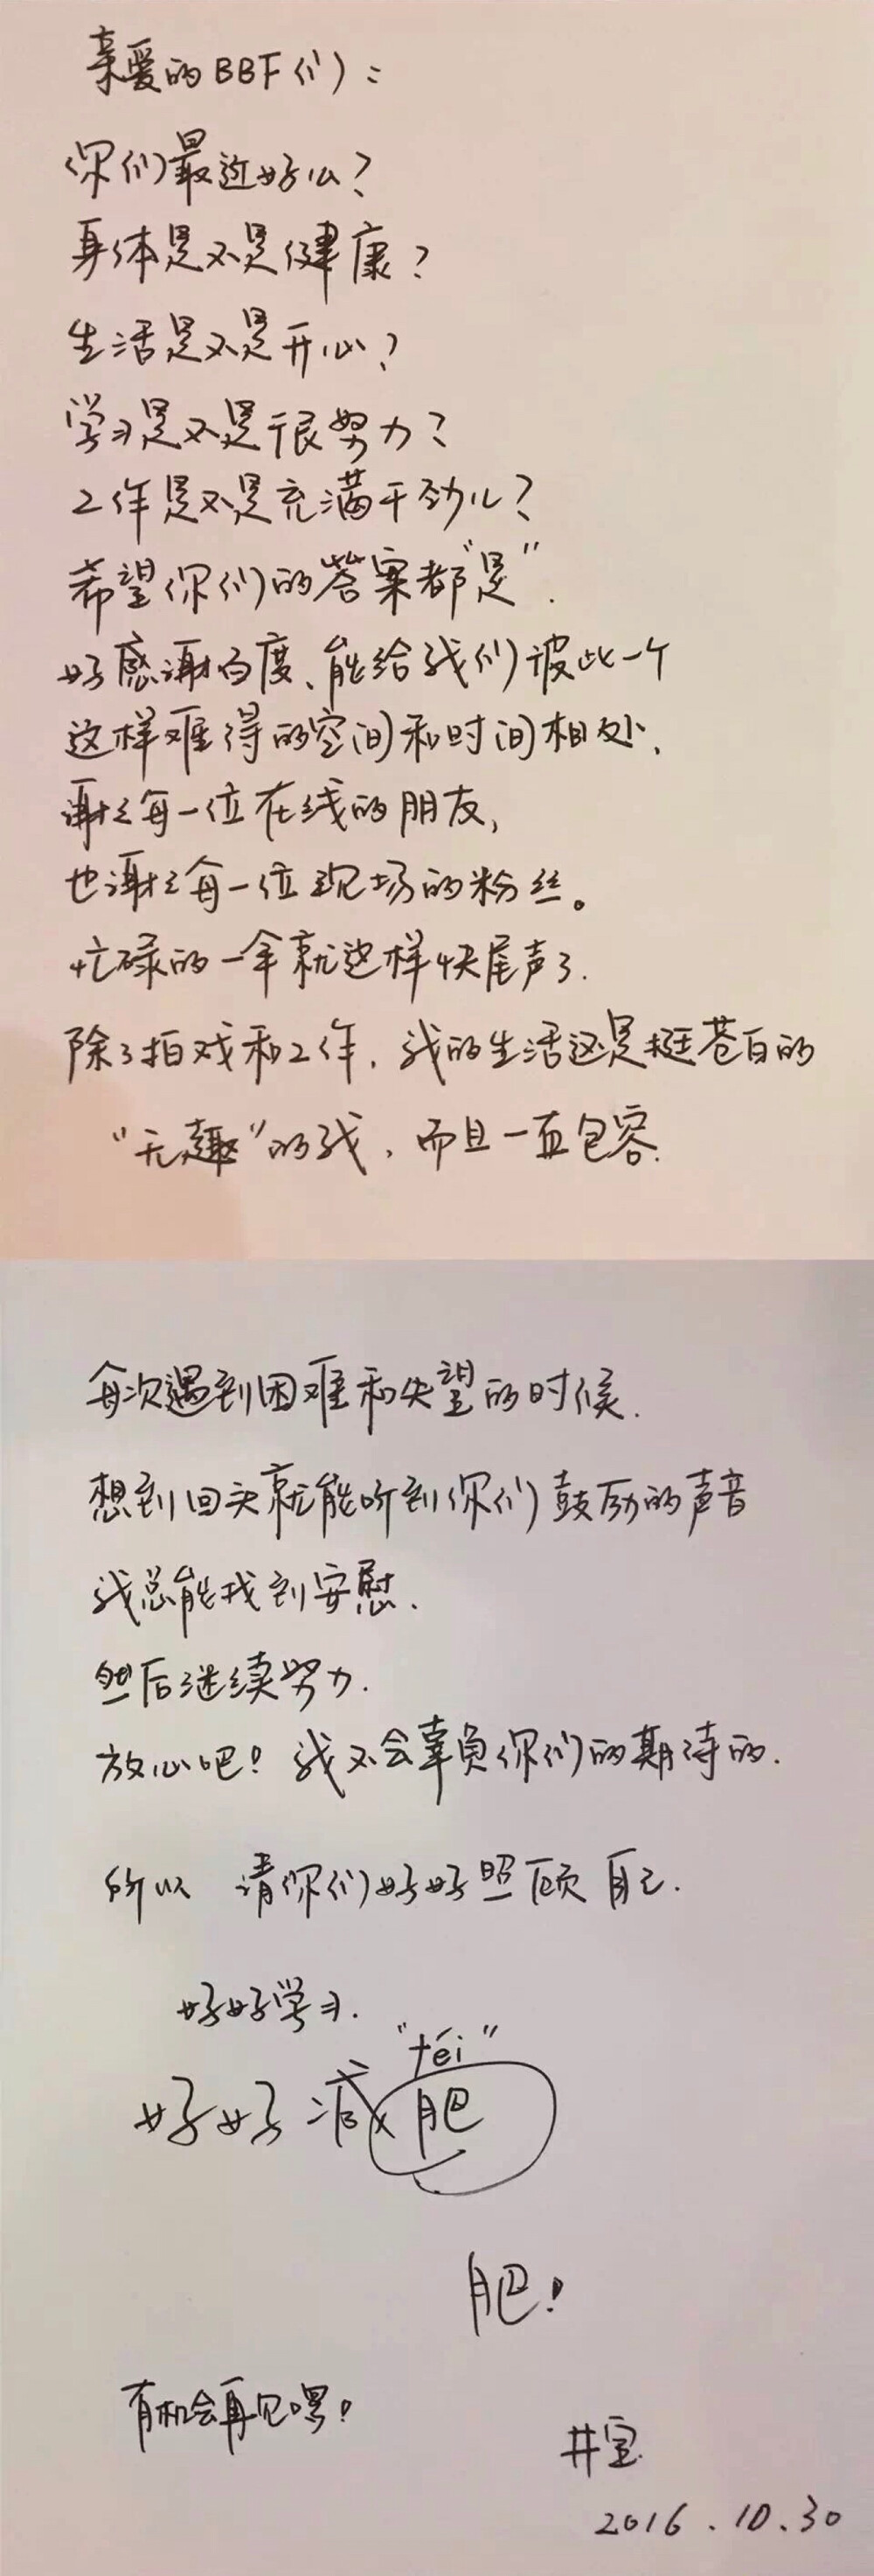 亲爱的BBF们：
你们最近好么？
身体是不是健康？
生活是不是开心？
学习是不是很努力？
工作是不是充满干劲儿？
希望你们的答案都“是”.
好感谢百度、能给我们彼此一个
这样难得的空间和时间相处、
谢谢每一位在线的朋友，
也谢谢每一位现场的粉丝。
忙碌的一年就这样快尾声了.
除了拍戏和工作，我的生活还是挺苍白的
“无趣”的我，而且一直包容.
每次遇到困难和失望的时候.
想到回头就能听到你们鼓励的声音
我总能找到安慰.
然后继续努力.
放心吧！我不会辜负你们的期待的.
所以 请你们好好照顾自己.
好好学习.
“féi”
好好减肥
肥！
有机会再见嘿！
井宝
2016.10.30